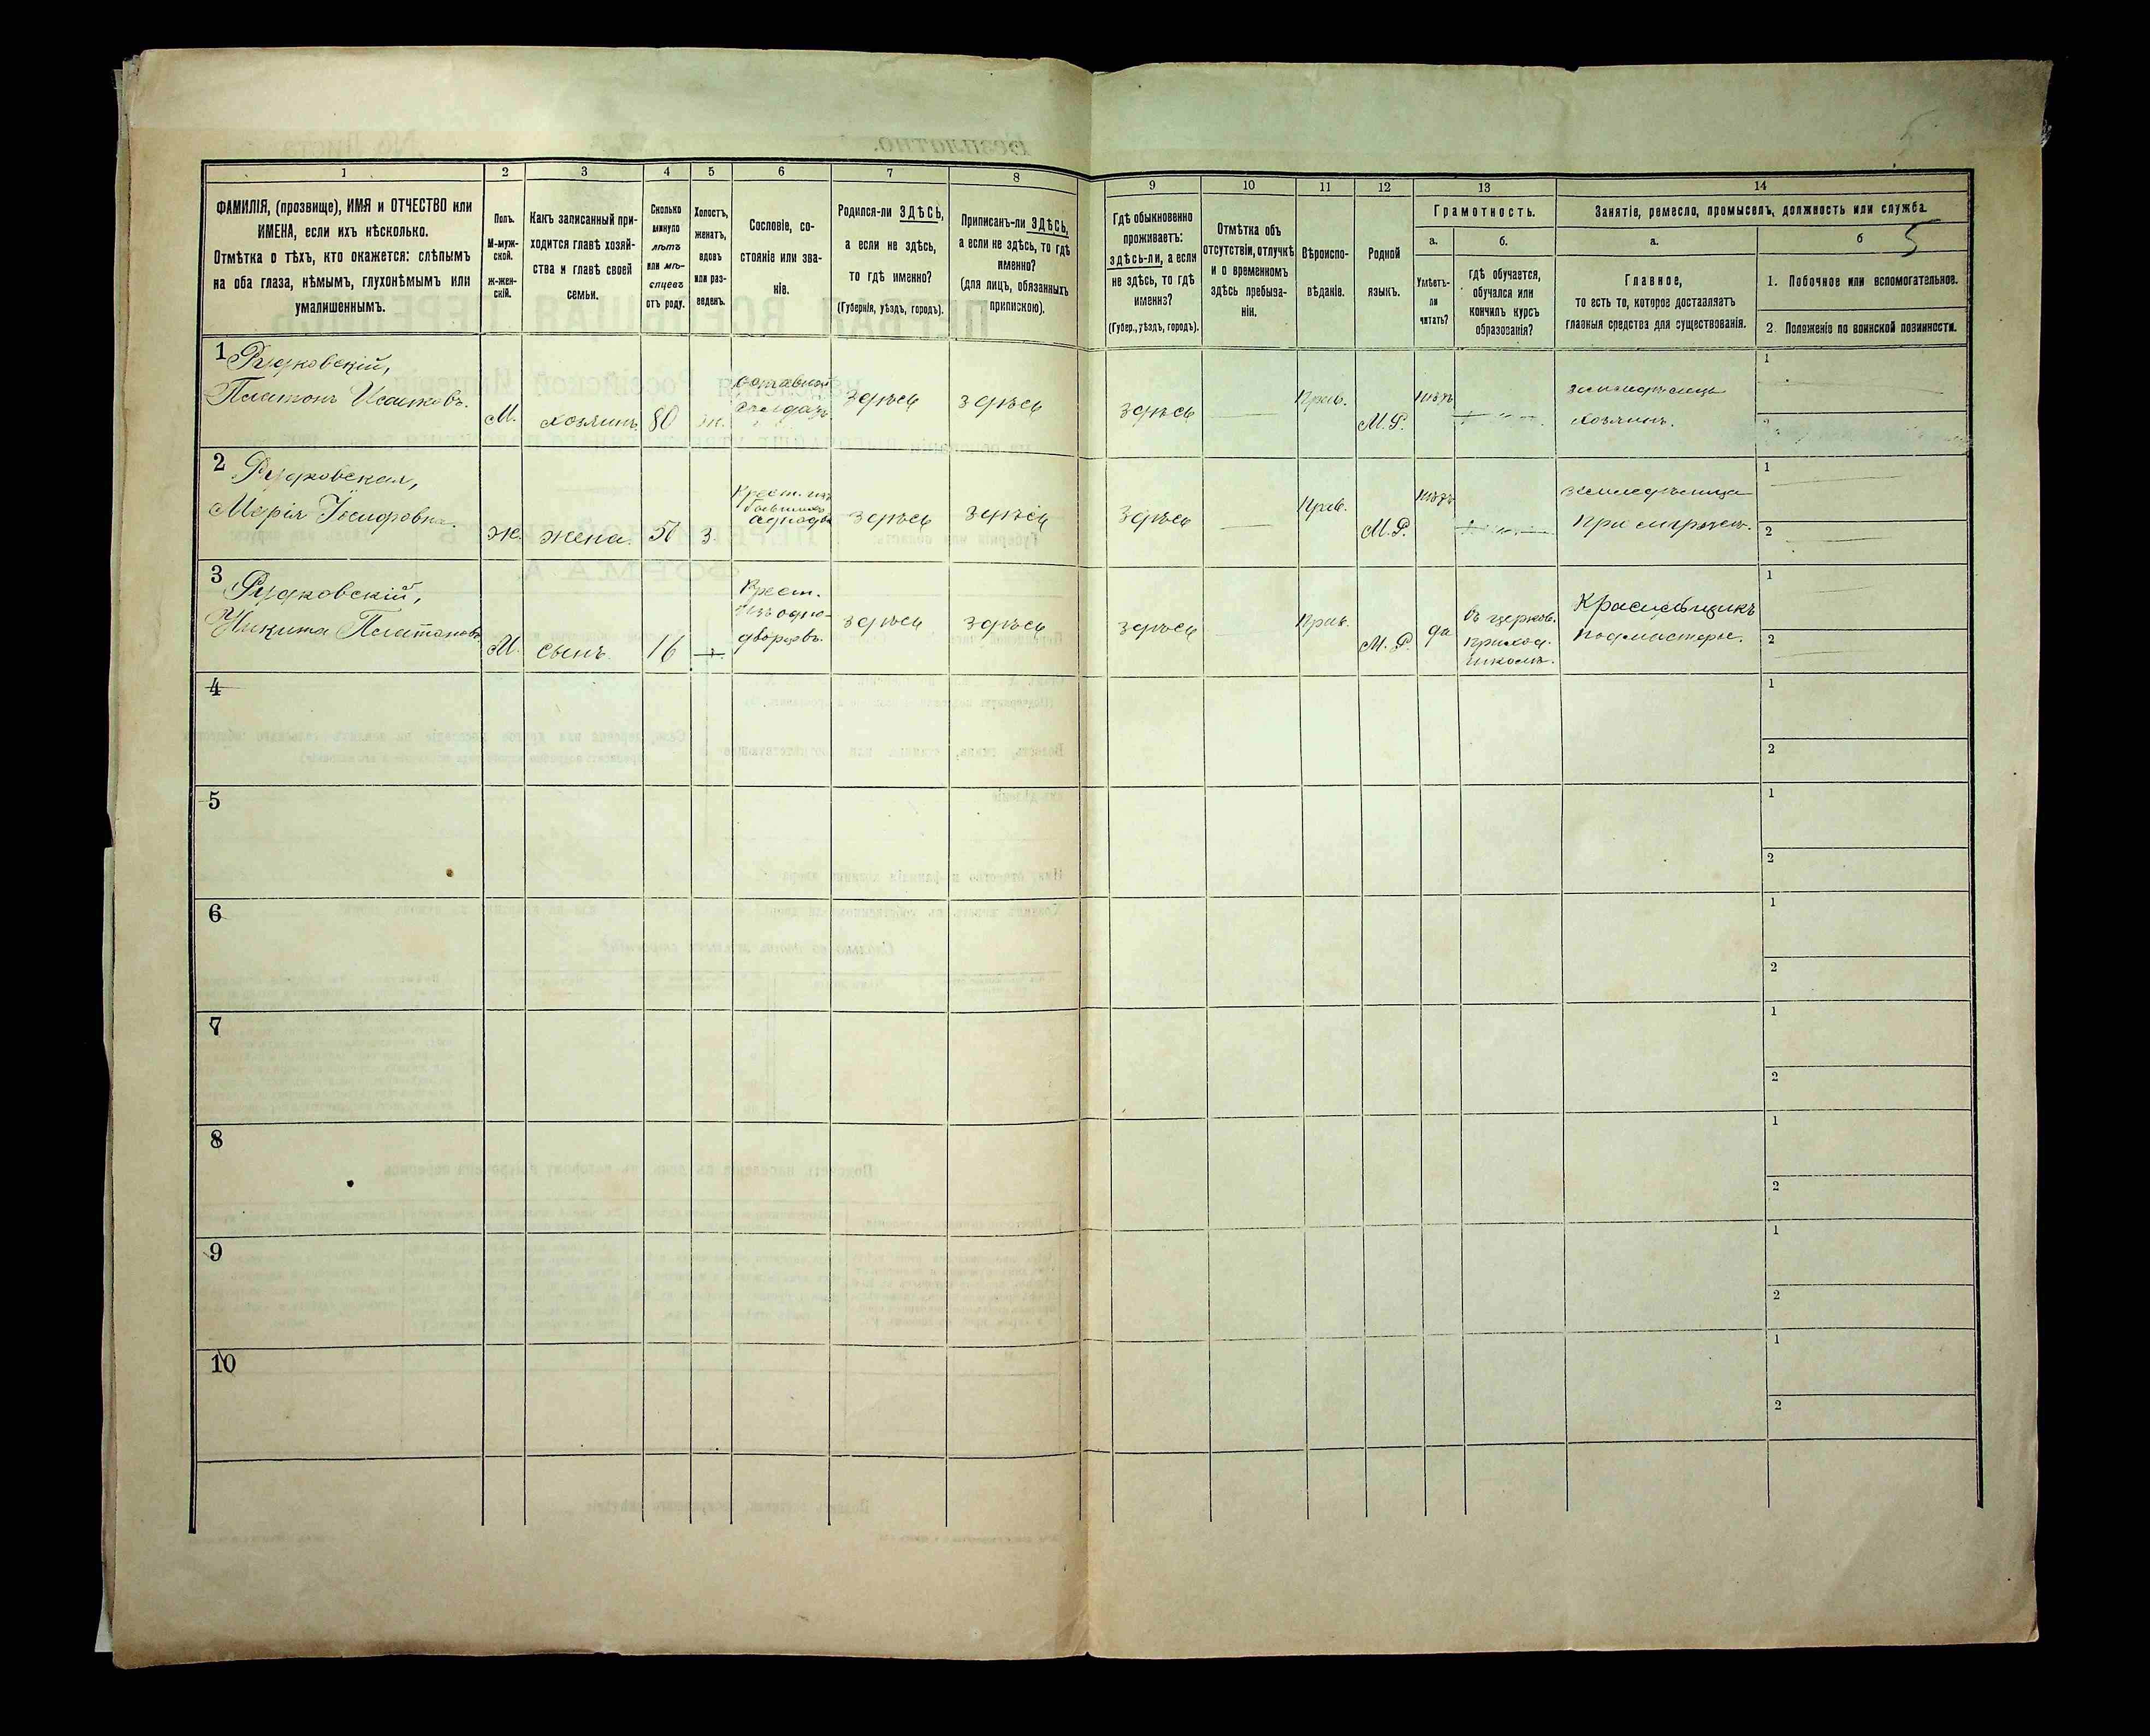 1
2
3
4
5
6
7
8
9
10
11
12
13
14
ФАМИЛІЯ, (прозвище), ИМЯ и ОТЧЕСТВО или
ИМЕНА, если ихъ нѣсколько.
Отмѣтка о тѣхъ, кто окажется: слѣпымъ
на оба глаза, нѣмымъ, глухонѣмымъ или
умалишеннымъ.
Полъ.
М-муж-
ской.
ж-жен-
скій.
Какъ записанный при-
ходится главѣ хозяй-
ства и главѣ своей
семьи.
Сколько
минуло
лѣтъ
или мѣ-
сяцевъ
отъ роду.
Холостъ,
женатъ,
вдовъ
или раз-
веденъ.
Сословіе, со-
стояніе или зва-
ніе.
Родился-ли ЗДѢСЬ,
а если не здѣсь,
то гдѣ именно?
(Губернія, уѣздъ, городъ).
Приписанъ-ли ЗДѢСЬ,
а если не здѣсь, то гдѣ
именно?
(для лицъ, обязанныхъ
припискою).
Гдѣ обыкновенно
проживаетъ:
здѣсь-ли, а если
не здѣсь, то гдѣ
именно?
(Губер., уѣздъ, городъ).
Отмѣтка объ
отсутствіи, отлучкѣ
и о временномъ
здѣсь пребыва-
ніи.
Вѣроиспо-
вѣданіе.
Родной
языкъ.
Грамотность.
а.
Умѣетъ-
ли
читать?
б.
гдѣ обучается,
обучался или
кончилъ курсъ
образованія?
Занятіе, ремесло, промыселъ, должность или служба.
а.
Главное,
то есть то, которое доставляетъ
главныя средства для существованія.
б
5
1. Побочное или вспомогательное.
2. Положеніе по воинской повинности.
1
Рудковскій,
Платонъ Исаковъ.
М.
хозяинъ
80
ж.
Отставной
солдатъ
здѣсь
здѣсь
здѣсь
Прав.
М.Р.
нѣтъ
земледѣлецъ
хозяинъ.
1
2
2
Рудковская,
Марія Іосифовна.
Ж.
жена.
57
з.
Крест. изъ
бывшихъ
однодв.
здѣсь
здѣсь
здѣсь
Прав.
М.Р.
нѣтъ
земледѣлица
при мужѣ.
1
2
3
Рудковскій,
Никита Платоновъ
М.
сынъ
16
Крест.
изъ одно-
дворцевъ.
здѣсь
здѣсь
здѣсь
Прав.
М.Р.
да
въ церков.
приход.
школѣ.
Красильщикъ
подмастерье.
1
2
4
1
2
5
1
2
6
1
2
7
1
2
8
1
2
9
1
2
10
1
2